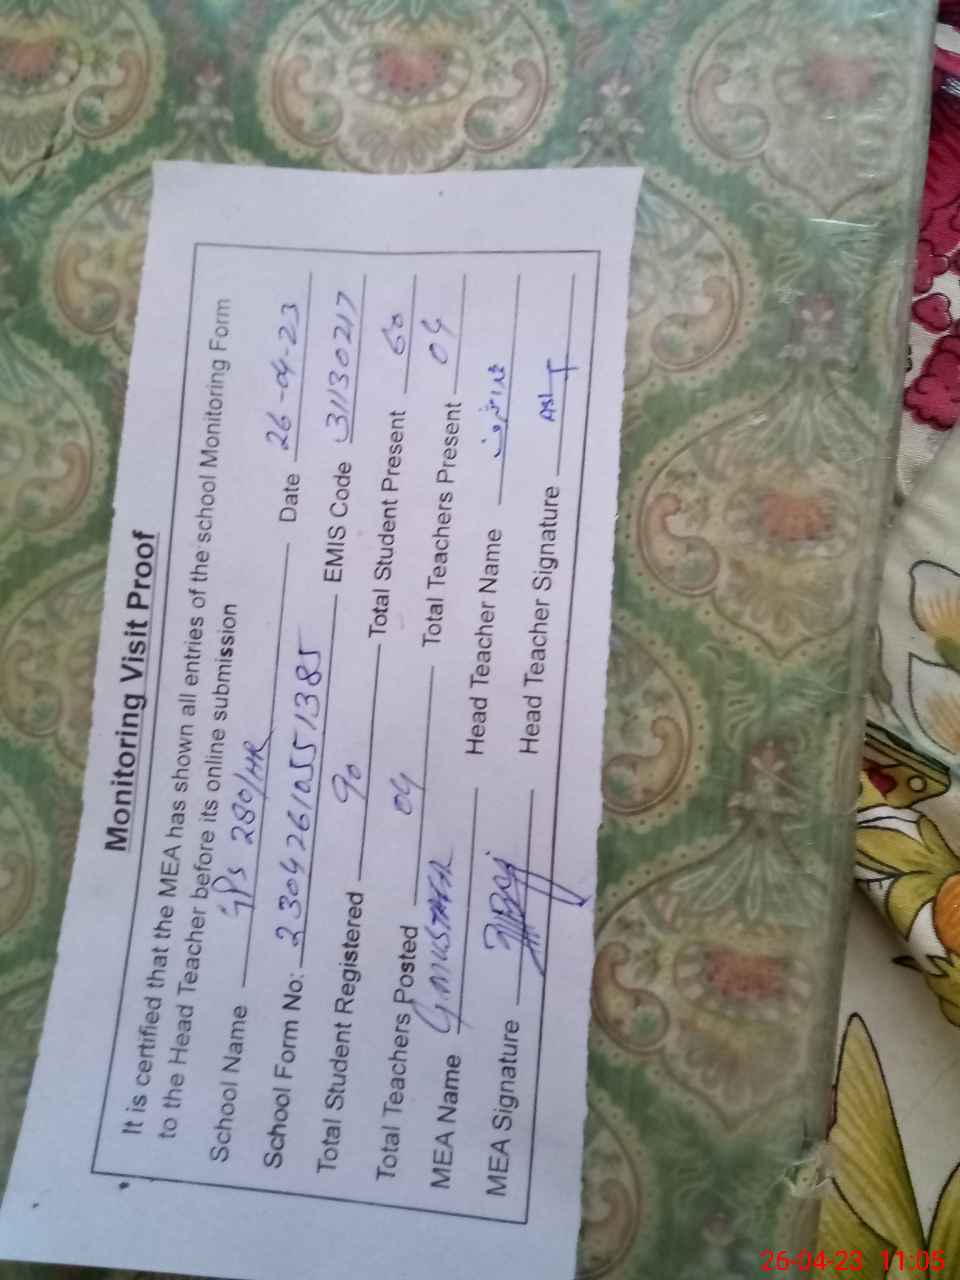 Monitoring Visit Proof
It is certified that the MEA has shown all entries of the school Monitoring Form
to the Head Teacher before its online submission
School Name GPS 280/HR Date 26-04-23
School Form No: 23042610551385 EMIS Code 31130217
Total Student Registered 90 Total Student Present 60
Total Teachers Posted 04 Total Teachers Present 04
MEA Name G. MUSTAFA Head Teacher Name
MEA Signature Head Teacher Signature
26-04-23 11:05